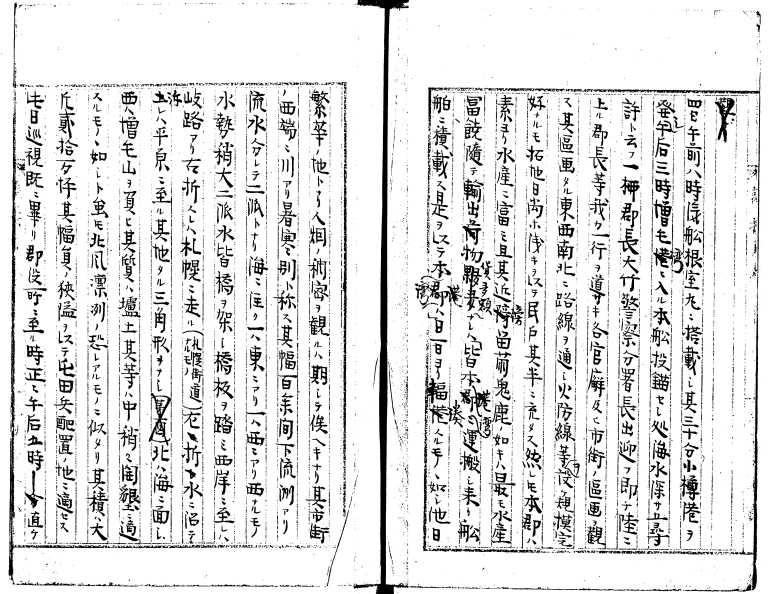 四日午前八時汽船根室丸ニ搭載シ其三十分小樽港ヲ
発シ午后三時増毛港ニ入ル本船投錨セシ処海水深サ一尋
許ト云フ一柳郡長大竹警察分署長出迎フ即チ陸ニ
上ル郡長等我カ一行ヲ道キ各官廨及ヒ市街ノ區画ヲ觀
ス其區画タル東西南北ニ路線ヲ通シ火防線等ノ設ケ規模完
好ナルモ拓地日尚ホ浅キヲ以テ民戸其半ニ充タス然レモ本郡ハ
素ヨリ水産ニ富ミ且其近傍留萌鬼鹿ノ如キハ最モ水産ニ
冨饒隨テ輸出荷物モ皆本港ニ運搬シ来リ船
舶ニ積載ス是ヲ以テ本港ハ一日ヨリ輻湊スルモノヽ如シ他日
繁華ノ地トナリ人烟稠密ヲ觀ルハ期シテ俟ヘキナリ其市街
ノ西端ニ川アリ暑寒別ト称ス其幅百余間下流洲アリ
流水分レテ二派トナリ海ニ注ク一ハ東ニアリ一ハ西ニアリ西ナルモノ
水勢稍大二派水皆橋ヲ架シ橋板ヲ踏ミ西岸ニ至レハ
岐路アリ右折スレハ札幌ニ走ル(札幌街道ナルモノ)左ニ折レ水ニ沿テ
上レハ平原ニ至ル其地タル三角形ヲナシ北ハ海ニ面シ
西ハ増毛山ヲ負ヒ其質ハ壚土其等ハ中稍ヤ開墾ニ適
スルモノヽ如シト虽モ北風凛冽ノ恐レアルモノニ似タリ其積ハ大
凡貳拾万坪其幅員ノ狭隘ヲ以テ屯田兵配置ノ地ニ適セス
此日巡視既ニ畢リ郡役所ニ至ル時正ニ午后五時直ケ